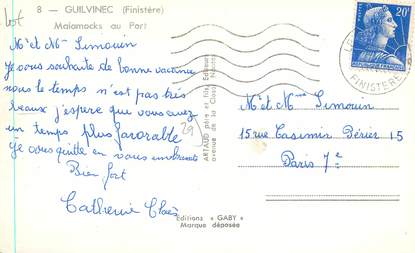 8 — GUILVINEC (Finistère)
Malamocks au Port
lot
Mr et Mme Simouin
Je vous souhaite de bonne vacances
nous le temps n'est pas très
beaux j'espère que vous avez
un temps plus favorable
Je vous quitte en vous embrassant
Bien fort
Catherine
29
ARTAUD père et fils, Editeurs
avenue de la Close, Nantes
Editions « GABY »
Marque déposée
20F
FINISTERE
Mr et Mme Simouin
15 rue Casimir Périer 15
Paris 7e